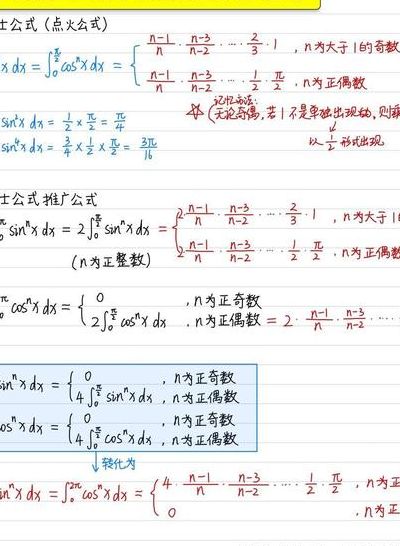 士公式 (点火公式)
x dx = ∫₀^{π/2} cosⁿx dx = { n-1/n · n-3/n-2 · … · 2/3 · 1 , n为大于1的奇数
n-1/n · n-3/n-2 · … · 1/2 · π/2 , n为正偶数
记忆方法:
☆ (无论奇偶, 若1不是单独出现, 则
以 1/2 形式出现
sin²x dx = 1/2 × π/2 = π/4
sin⁴x dx = 3/4 × 1/2 × π/2 = 3π/16
士公式 推广公式
sinⁿx dx = 2∫₀^{π/2} sinⁿx dx = { 2· n-1/n · n-3/n-2 · … · 2/3 · 1 , n为大于1
2· n-1/n · n-3/n-2 · … · 1/2 · π/2 , n为正偶数
(n为正整数)
cosⁿx dx = { 0 , n为正奇数
2∫₀^{π/2} cosⁿx dx , n为正偶数 = 2 · n-1/n · n-3/n-2 …
sinⁿx dx = { 0 , n为正奇数
4∫₀^{π/2} sinⁿx dx , n为正偶数
cosⁿx dx = { 0 , n为正奇数
4∫₀^{π/2} cosⁿx dx , n为正偶数
↓ 转化为
sinⁿx dx = ∫₀^{2π} cosⁿx dx = { 4 · n-1/n · n-3/n-2 … 1/2 · π/2 , n为正
0 , n为正